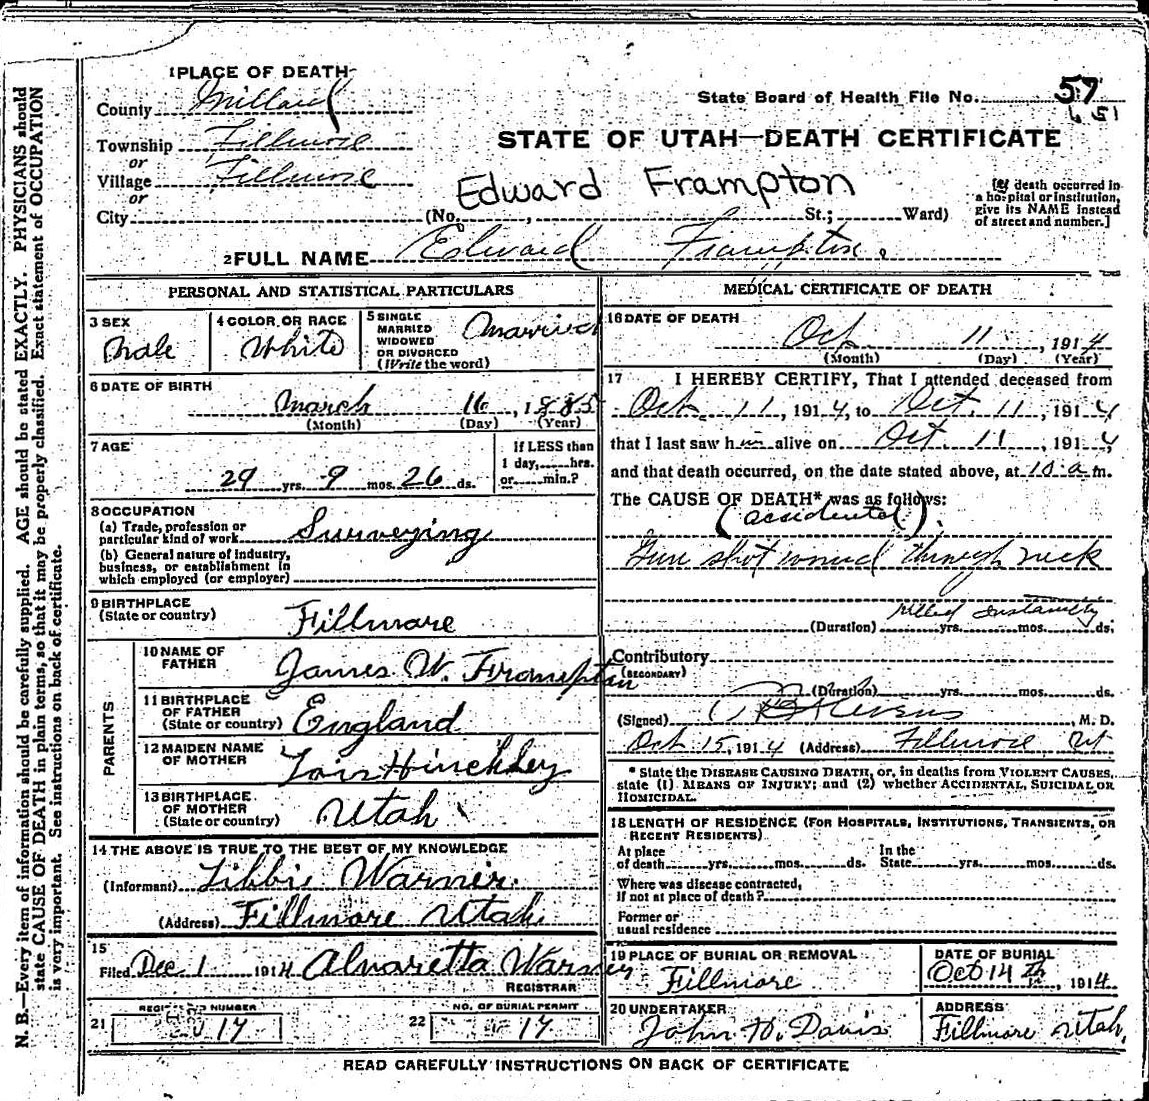 1 PLACE OF DEATH
County Millard
State Board of Health File No. 57
651
Township Fillmore
STATE OF UTAH—DEATH CERTIFICATE
or
Village Fillmore
or
Edward Frampton
City (No. , St.; Ward)
[If death occurred in
a hospital or institution,
give its NAME instead
of street and number.]
2 FULL NAME Edward Frampton.
PERSONAL AND STATISTICAL PARTICULARS
3 SEX
Male
4 COLOR OR RACE
White
5 SINGLE
MARRIED
WIDOWED
OR DIVORCED
(Write the word)
Married
6 DATE OF BIRTH
March 16, 1885
(Month) (Day) (Year)
7 AGE
29 yrs. 9 mos. 26 ds.
If LESS than
1 day, hrs.
or min.?
8 OCCUPATION
(a) Trade, profession or
particular kind of work Surveying
(b) General nature of industry,
business, or establishment in
which employed (or employer)
9 BIRTHPLACE
(State or country) Fillmore
PARENTS
10 NAME OF
FATHER James W. Frampton
11 BIRTHPLACE
OF FATHER
(State or country) England
12 MAIDEN NAME
OF MOTHER Hinckley
13 BIRTHPLACE
OF MOTHER
(State or country) Utah
14 THE ABOVE IS TRUE TO THE BEST OF MY KNOWLEDGE
(Informant) Libbie Warner.
(Address) Fillmore Utah
15
Filed Dec 1 1914 Alvaretta Warner
REGISTRAR
21 REGISTERED NUMBER
17
22 NO. OF BURIAL PERMIT
17
MEDICAL CERTIFICATE OF DEATH
16 DATE OF DEATH
Oct. 11, 1914
(Month) (Day) (Year)
17 I HEREBY CERTIFY, That I attended deceased from
Oct. 11, 1914, to Oct. 11, 1914
that I last saw him alive on Oct. 11, 1914
and that death occurred, on the date stated above, at 10 a m.
The CAUSE OF DEATH* was as follows:
(accidental).
Gun shot wound through neck
killed instantly
(Duration) yrs. mos. ds.
Contributory
(SECONDARY)
(Duration) yrs. mos. ds.
(Signed) Stevens, M. D.
Oct 15, 1914 (Address) Fillmore Ut
* State the DISEASE CAUSING DEATH, or, in deaths from VIOLENT CAUSES,
state (1) MEANS OF INJURY; and (2) whether ACCIDENTAL, SUICIDAL OR
HOMICIDAL.
18 LENGTH OF RESIDENCE (FOR HOSPITALS, INSTITUTIONS, TRANSIENTS, OR
RECENT RESIDENTS)
At place
of death yrs. mos. ds.
In the
State yrs. mos. ds.
Where was disease contracted,
if not at place of death?
Former or
usual residence
19 PLACE OF BURIAL OR REMOVAL
Fillmore
DATE OF BURIAL
Oct 14th, 1914
20 UNDERTAKER
John H. Davis
ADDRESS
Fillmore Utah,
READ CAREFULLY INSTRUCTIONS ON BACK OF CERTIFICATE
N. B.—Every item of information should be carefully supplied. AGE should be stated EXACTLY. PHYSICIANS should
state CAUSE OF DEATH in plain terms, so that it may be properly classified. Exact statement of OCCUPATION
is very important. See instructions on back of certificate.